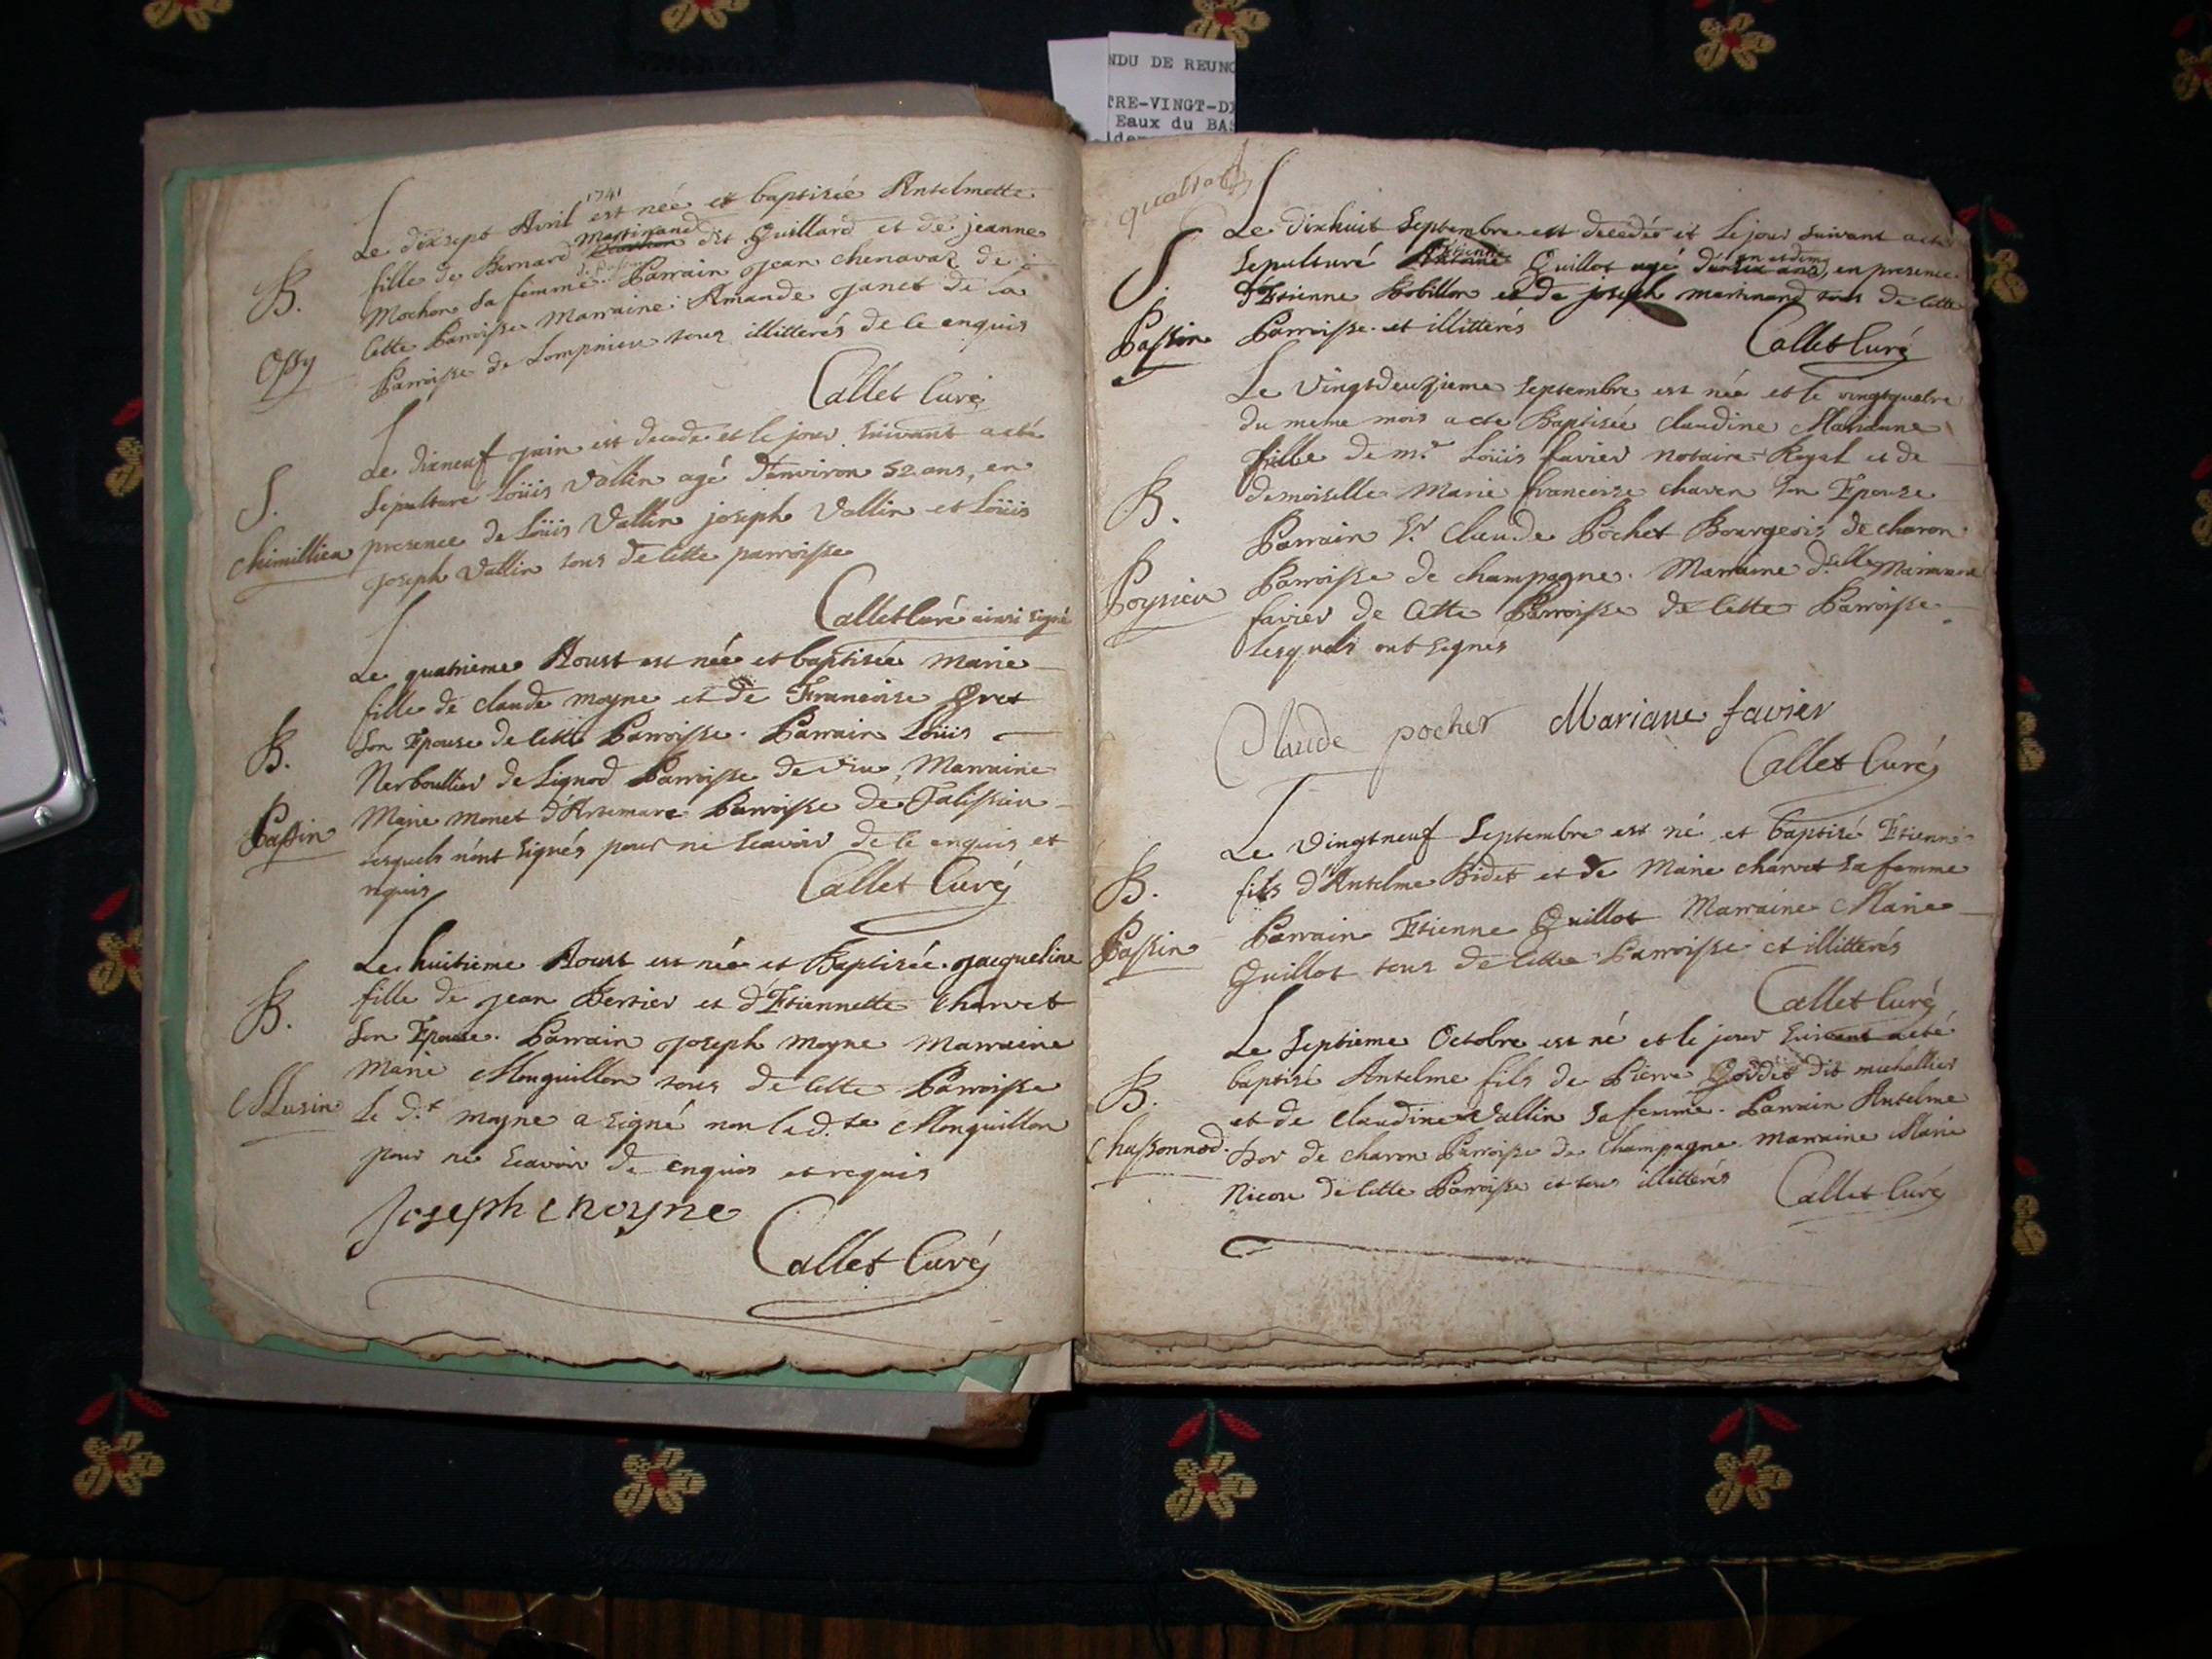 NDU DE REUNC
TRE-VINGT-DI
Eaux du BAS
1741
Le dixsept Avril est née et baptisée Antelmette
fille de Bernard Martinand dit Quillard et de jeanne
B.
Mochon sa femme. Parrain jean chenavaz de
cette Parroisse Marraine Amande janet de la
Ossy
Parroisse de Lompnieu tous illitterés de ce enquis
Callet Curé
Le dixneuf juin est decedé et le jour suivant a eté
S.
Sepulturé Loüis Vallin agé d'environ 52 ans, en
chimillieu
presence de Loüis Vallin joseph Vallin et Loüis
joseph Vallin tous de cette parroisse
Callet Curé ainsi signé
Le quatrieme Aoust est née et baptisée Marie
fille de claude moyne et de Francoise
B.
son Epouse de cette Parroisse. Parrain Loüis
Nerboullier de Lignod Parroisse de viu, Marraine
Passin
Marie monet d'Artemare Parroisse de Talissieu
lesquels n'ont signés pour ne scavoir de ce enquis et
requis
Callet Curé
Le huitieme Aoust est née et Baptisée jacqueline
B.
fille de jean Bertier et d'Etiennette Charvet
son Epouse. Parrain joseph moyne Marraine
Marie Monguillon tous de cette Parroisse
Musin
Le d.t moyne a signé non la d.te Monguillon
pour ne scavoir de enquis et requis
Joseph moyne
Callet Curé
quatre
Le dixhuit Septembre est decedé et le jour suivant a eté
S.
Sepulturé Etienne Quillot agé d'un an et demy, en presence
d'Etienne Bobillon et de joseph martinand tous de cette
Passin
Parroisse et illitterés
Callet Curé
Le vingtdeuxieme Septembre est née et le vingtquatre
du meme mois a eté Baptisée claudine Marianne
fille de m.e Loüis favier notaire Royal et de
B.
demoiselle Marie francoise charen son Epouse
Parrain S.r Claude Pochet Bourgeois de charon
Poysieu
Parroisse de champagne. Marraine d.elle Marianne
favier de cette Parroisse de cette Parroisse
lesquels ont signés
Claude pochet Mariane favier
Callet Curé
Le vingtneuf Septembre est né et baptisé Etienne
B.
fils d'Antelme Bidet et de Marie charvet sa femme
Passin
Parrain Etienne Quillot Marraine Marie
Quillot tous de cette Parroisse et illitterés
Callet Curé
Le Septieme Octobre est né et le jour suivant a eté
B.
baptisé Antelme fils de Pierre Goddet dit michallier
et de claudine Vallin sa femme. Parrain Antelme
Chassonnod.
Bor de charon Parroisse de Champagne Marraine Marie
Nicou de cette Parroisse et tous illitterés
Callet Curé